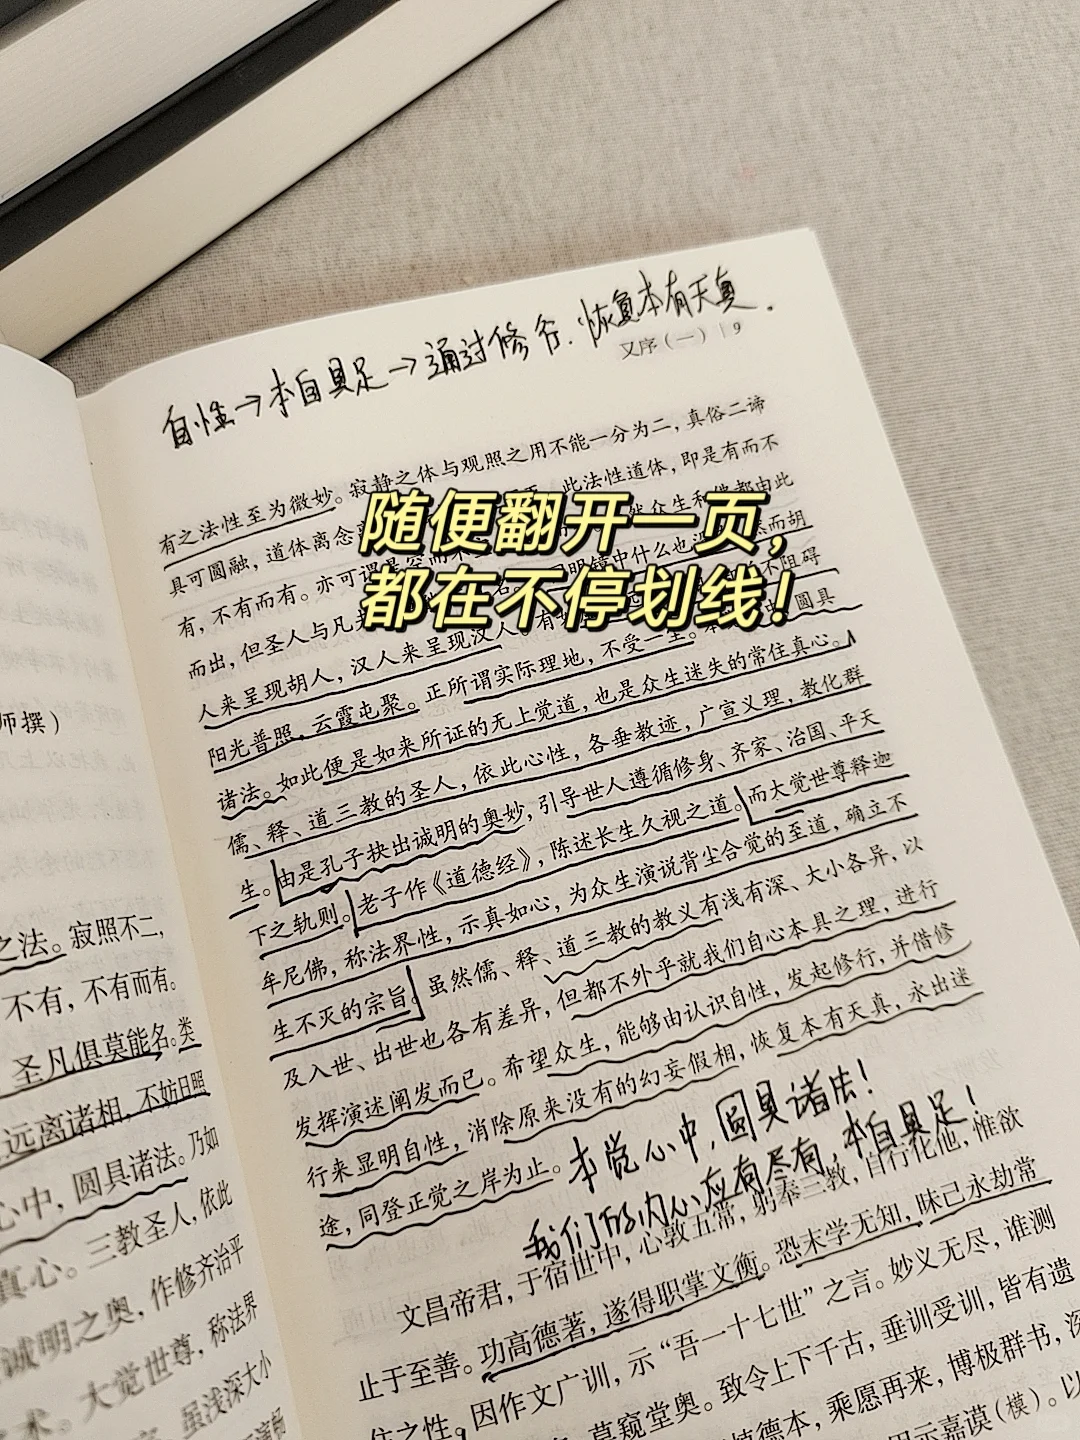 自性→本自具足→通过修行.恢复本有天真.
又序(一) | 9
随便翻开一页，
都在不停划线！
师撰）
之法。寂照不二，
不有，不有而有。
圣凡俱莫能名。类
远离诸相，不妨日照
心中，圆具诸法。乃如
真心。三教圣人，依此
诚明之奥，作修齐治平
术。大觉世尊，称法界
虽浅深大小
有之法性至为微妙。寂静之体与观照之用不能一分为二，真俗二谛
具可圆融，道体离念 此法性道体，即是有而不
有，不有而有。亦可谓是空而不 众生和佛都由此
而出，但圣人与凡夫 镜中什么也没 然而胡
人来呈现胡人，汉人来呈现汉人。有 不阻碍
阳光普照，云霞屯聚。正所谓实际理地，不受一尘。 圆具
诸法。如此便是如来所证的无上觉道，也是众生迷失的常住真心。
儒、释、道三教的圣人，依此心性，各垂教迹，广宣义理，教化群
生。由是孔子抉出诚明的奥妙，引导世人遵循修身、齐家、治国、平天
下之轨则。老子作《道德经》，陈述长生久视之道。而大觉世尊释迦
牟尼佛，称法界性，示真如心，为众生演说背尘合觉的至道，确立不
生不灭的宗旨。虽然儒、释、道三教的教义有浅有深、大小各异，以
及入世、出世也各有差异，但都不外乎就我们自心本具之理，进行
发挥演述阐发而已。希望众生，能够由认识自性，发起修行，并借修
行来显明自性，消除原来没有的幻妄假相，恢复本有天真，永出迷
途，同登正觉之岸为止。
本觉心中，圆具诸法！
我们的内心应有尽有，本自具足！
文昌帝君，于宿世中，心敦五常，躬奉三教，自行化他，惟欲
止于至善。功高德著，遂得职掌文衡。恐末学无知，昧己永劫常
住之性。因作文广训，示“吾一十七世”之言。妙义无尽，谁测
莫窥堂奥。致令上下千古，垂训受训，皆有遗
植德本，乘愿再来，博极群书，深
示嘉谟（模）。以